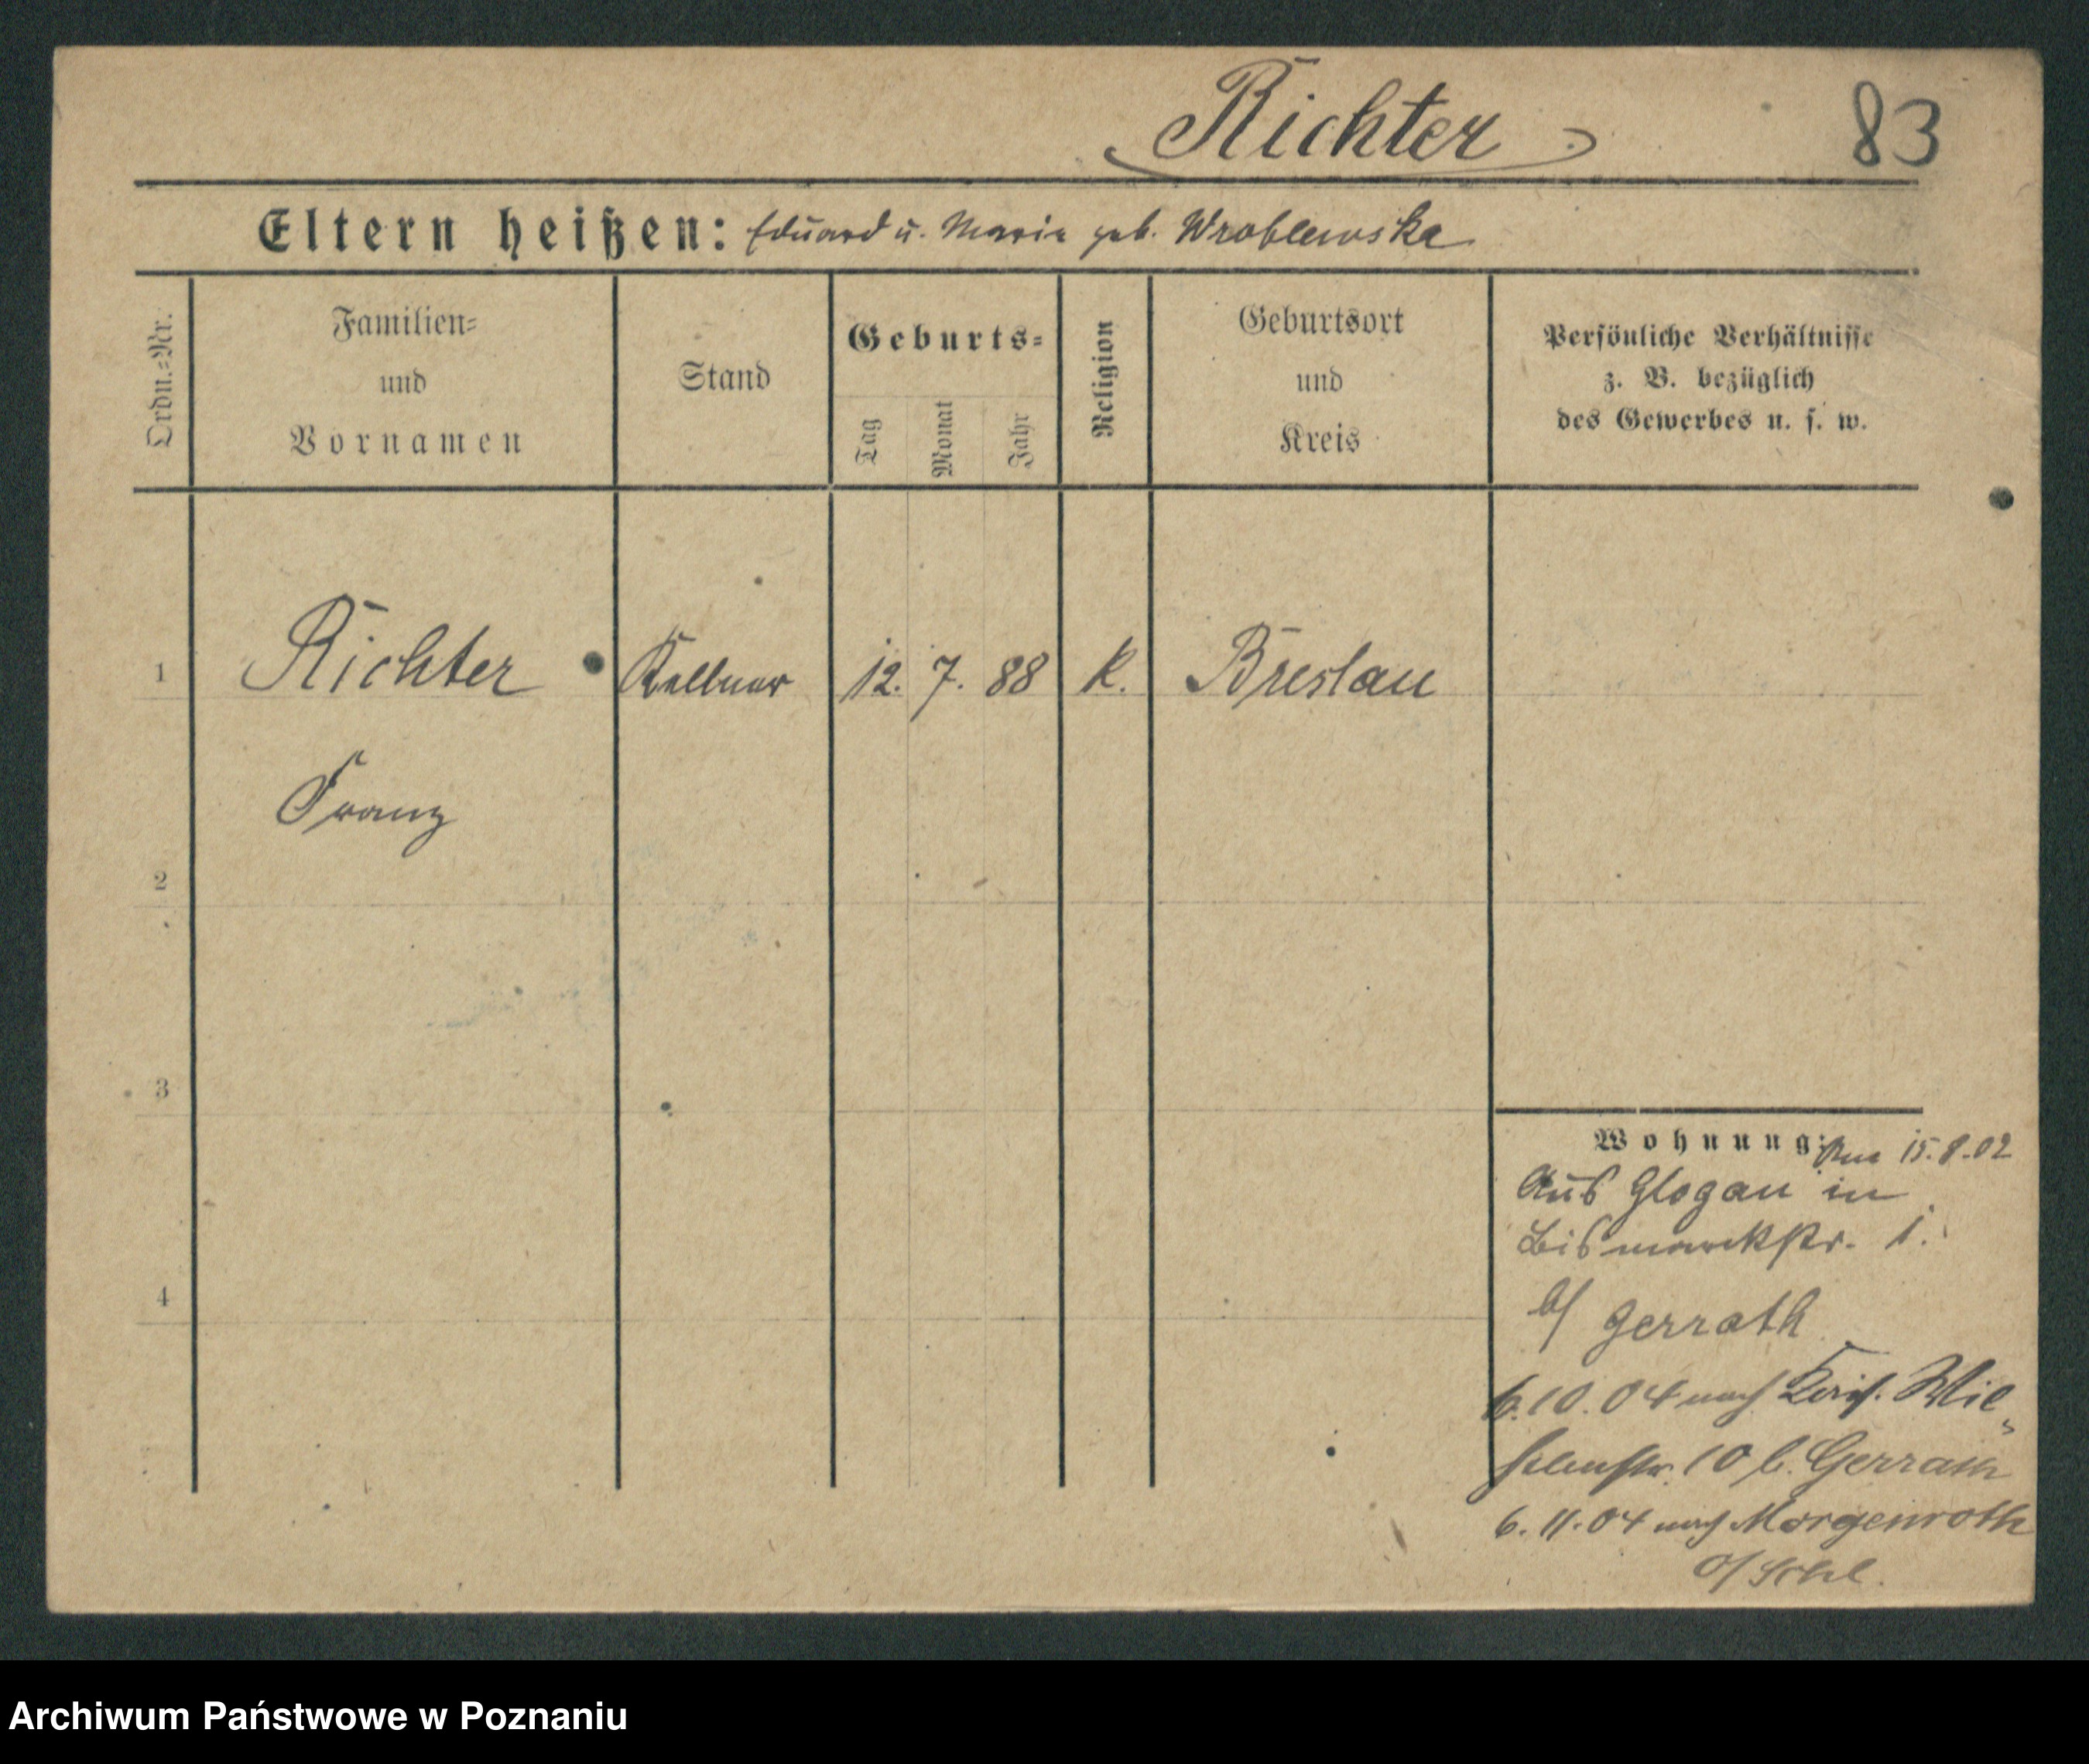 Richter
83
Eltern heißen: Eduard u. Maria geb. Wroblewska
Ordn.-Nr.
Familien-
und
Vornamen
Stand
Geburts-
Tag
Monat
Jahr
Religion
Geburtsort
und
Kreis
Persönliche Verhältnisse
z. B. bezüglich
des Gewerbes u. s. w.
1 Richter Kellner 12. 7. 88 K. Breslau
Franz
2
3
4
Wohnung: Am 15.8.02
Aus Glogau in
Bismarckstr. 1.
b/ Gerrath
6.10.04 nach Kais. Wil-
helmstr. 10 b. Gerrath
6. 11. 04 nach Morgenroth
O/Schl.
Archiwum Państwowe w Poznaniu